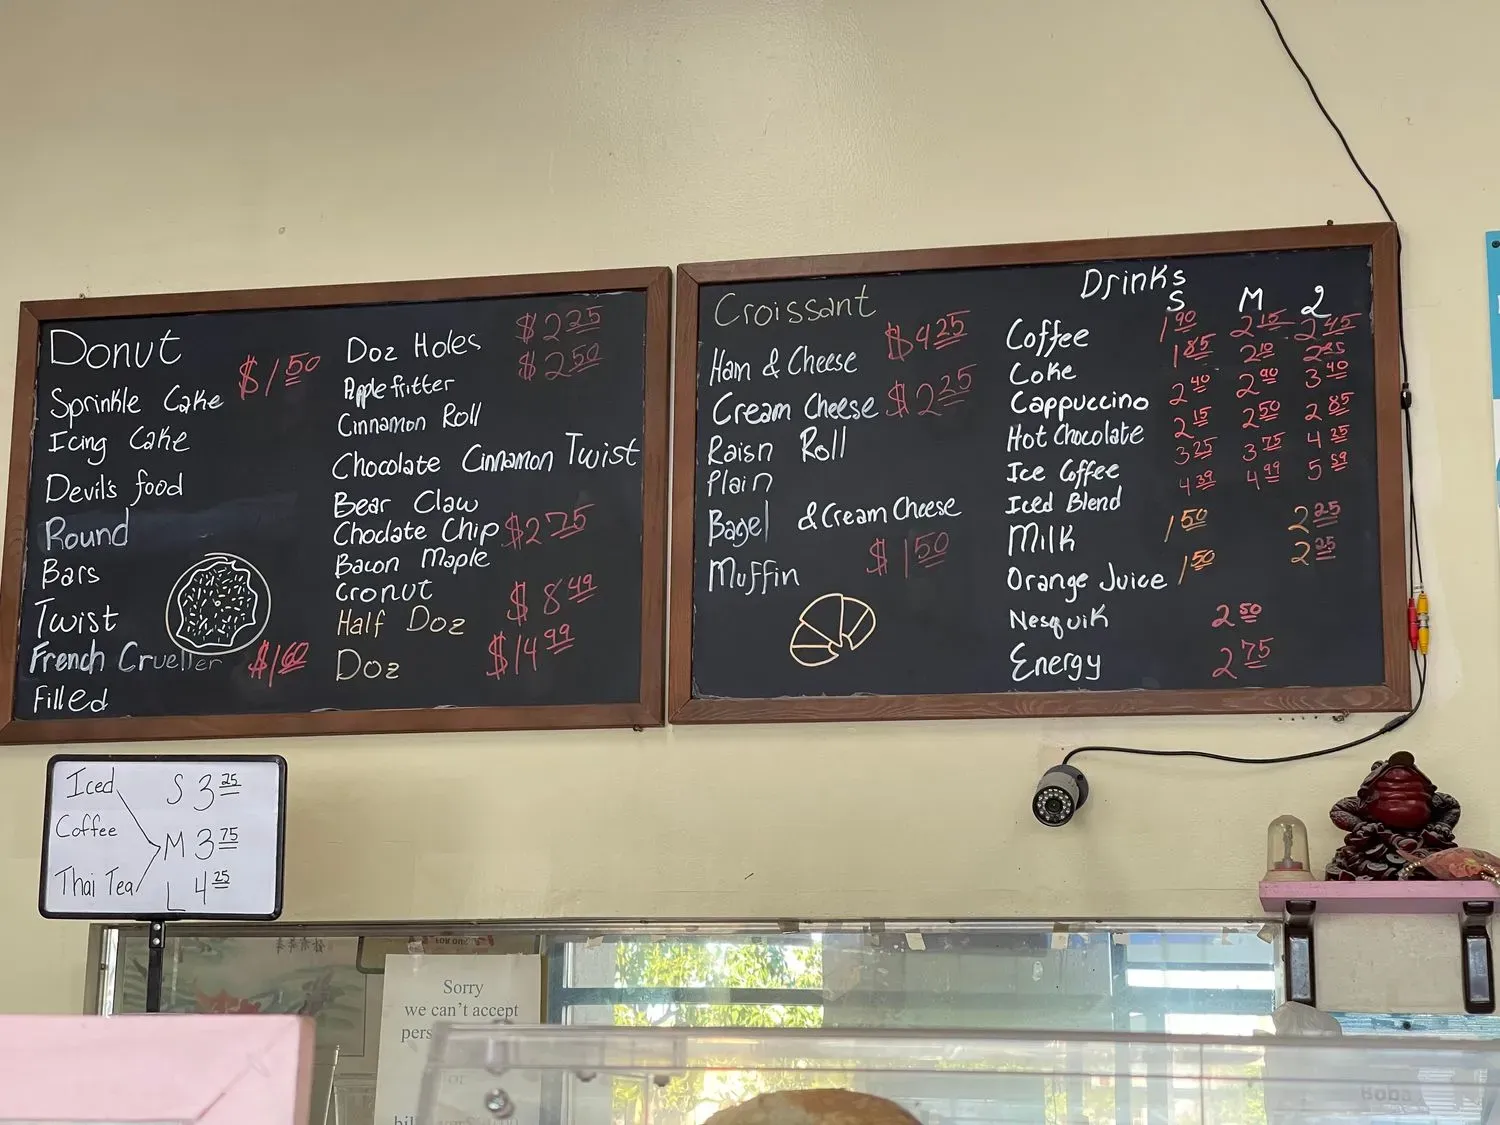 Donut
$1.50
Sprinkle Cake
Icing Cake
Devil's food
Round
Bars
Twist
French Crueller $1.60
Filled
Doz Holes $2.25
Apple fritter $2.50
Cinnamon Roll
Chocolate Cinnamon Twist
Bear Claw
Choclate Chip $2.75
Bacon Maple
Cronut
Half Doz $8.49
Doz $14.99
Croissant
Ham & Cheese $4.25
Cream Cheese $2.25
Raisn Roll
Plain
Bagel & Cream Cheese
Muffin $1.50
Drinks
S M L
Coffee 1.90 2.15 2.45
Coke 1.85 2.10
Cappuccino 2.40 2.90 3.40
Hot Chocolate 2.15 2.50 2.85
Ice Coffee 3.25 3.75 4.25
Iced Blend 4.39 4.99 5.59
Milk 1.50 2.25
Orange Juice 1.50 2.25
Nesquik 2.50
Energy 2.75
Iced S 3.25
Coffee M 3.75
Thai Tea L 4.25
Sorry
we can't accept